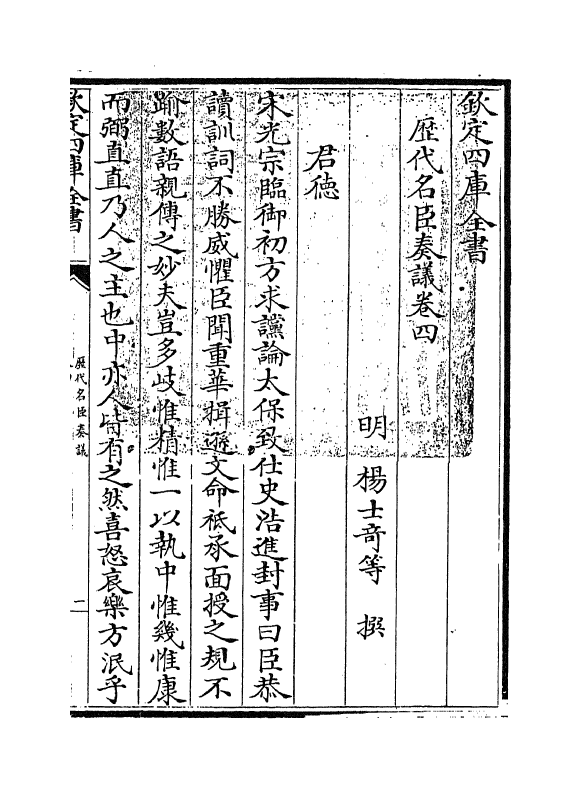 欽定四庫全書
歴代名臣奏議卷四
明 楊士奇等 撰
君德
宋光宗臨御初方求讜論太保致仕史浩進封事曰臣恭
讀訓詞不勝威懼臣聞重華揖遜文命祗承面授之規不
踰數語親傳之妙夫豈多岐惟精惟一以執中惟幾惟康
而弼直直乃人之主也中亦人皆有之然喜怒哀樂方泯乎
欽定四庫全書
歴代名臣奏議
二